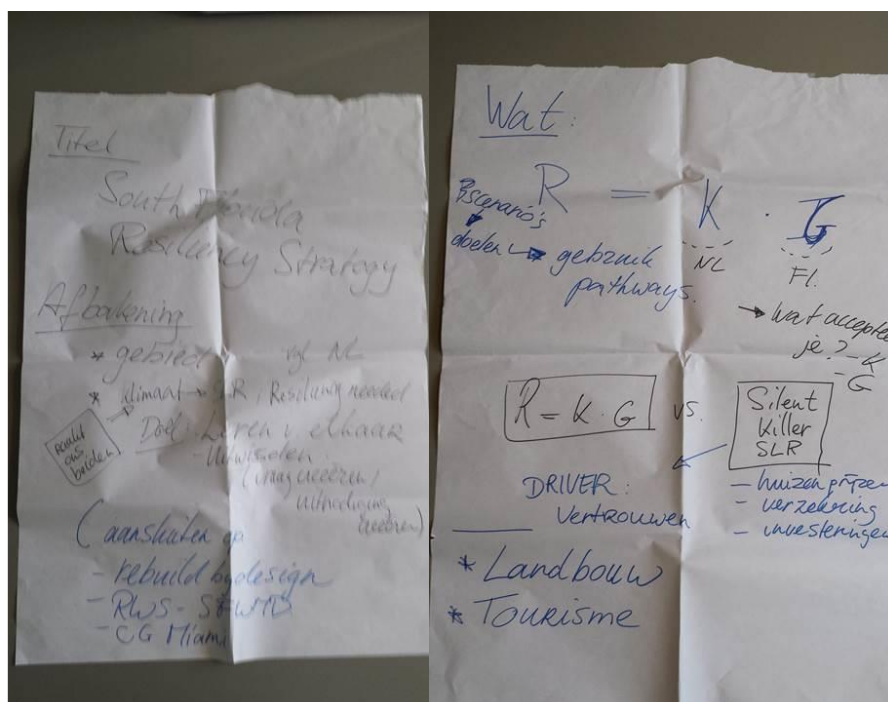 Titel
South Florida
Resiliency Strategy
Afbakening
* gebied vgl NL
* klimaat → SLR, Resiliency needed
Raakt
ons
beiden
Doel: Leren v elkaar
- uitwisselen
(
uitnodiging
(aansluiten op
- rebuild by design
- RWS - SFWMD
- CG Miami
Wat:
R = K · G
3 scenario's
doelen → gebruik
pathways.
NL
Fl.
→ Wat accepteer
je? - K
- G
R = K · G vs.
Silent
Killer
SLR
DRIVER:
Vertrouwen
- huizenprijzen
- verzekering
- investeringen
* Landbouw
* Tourisme